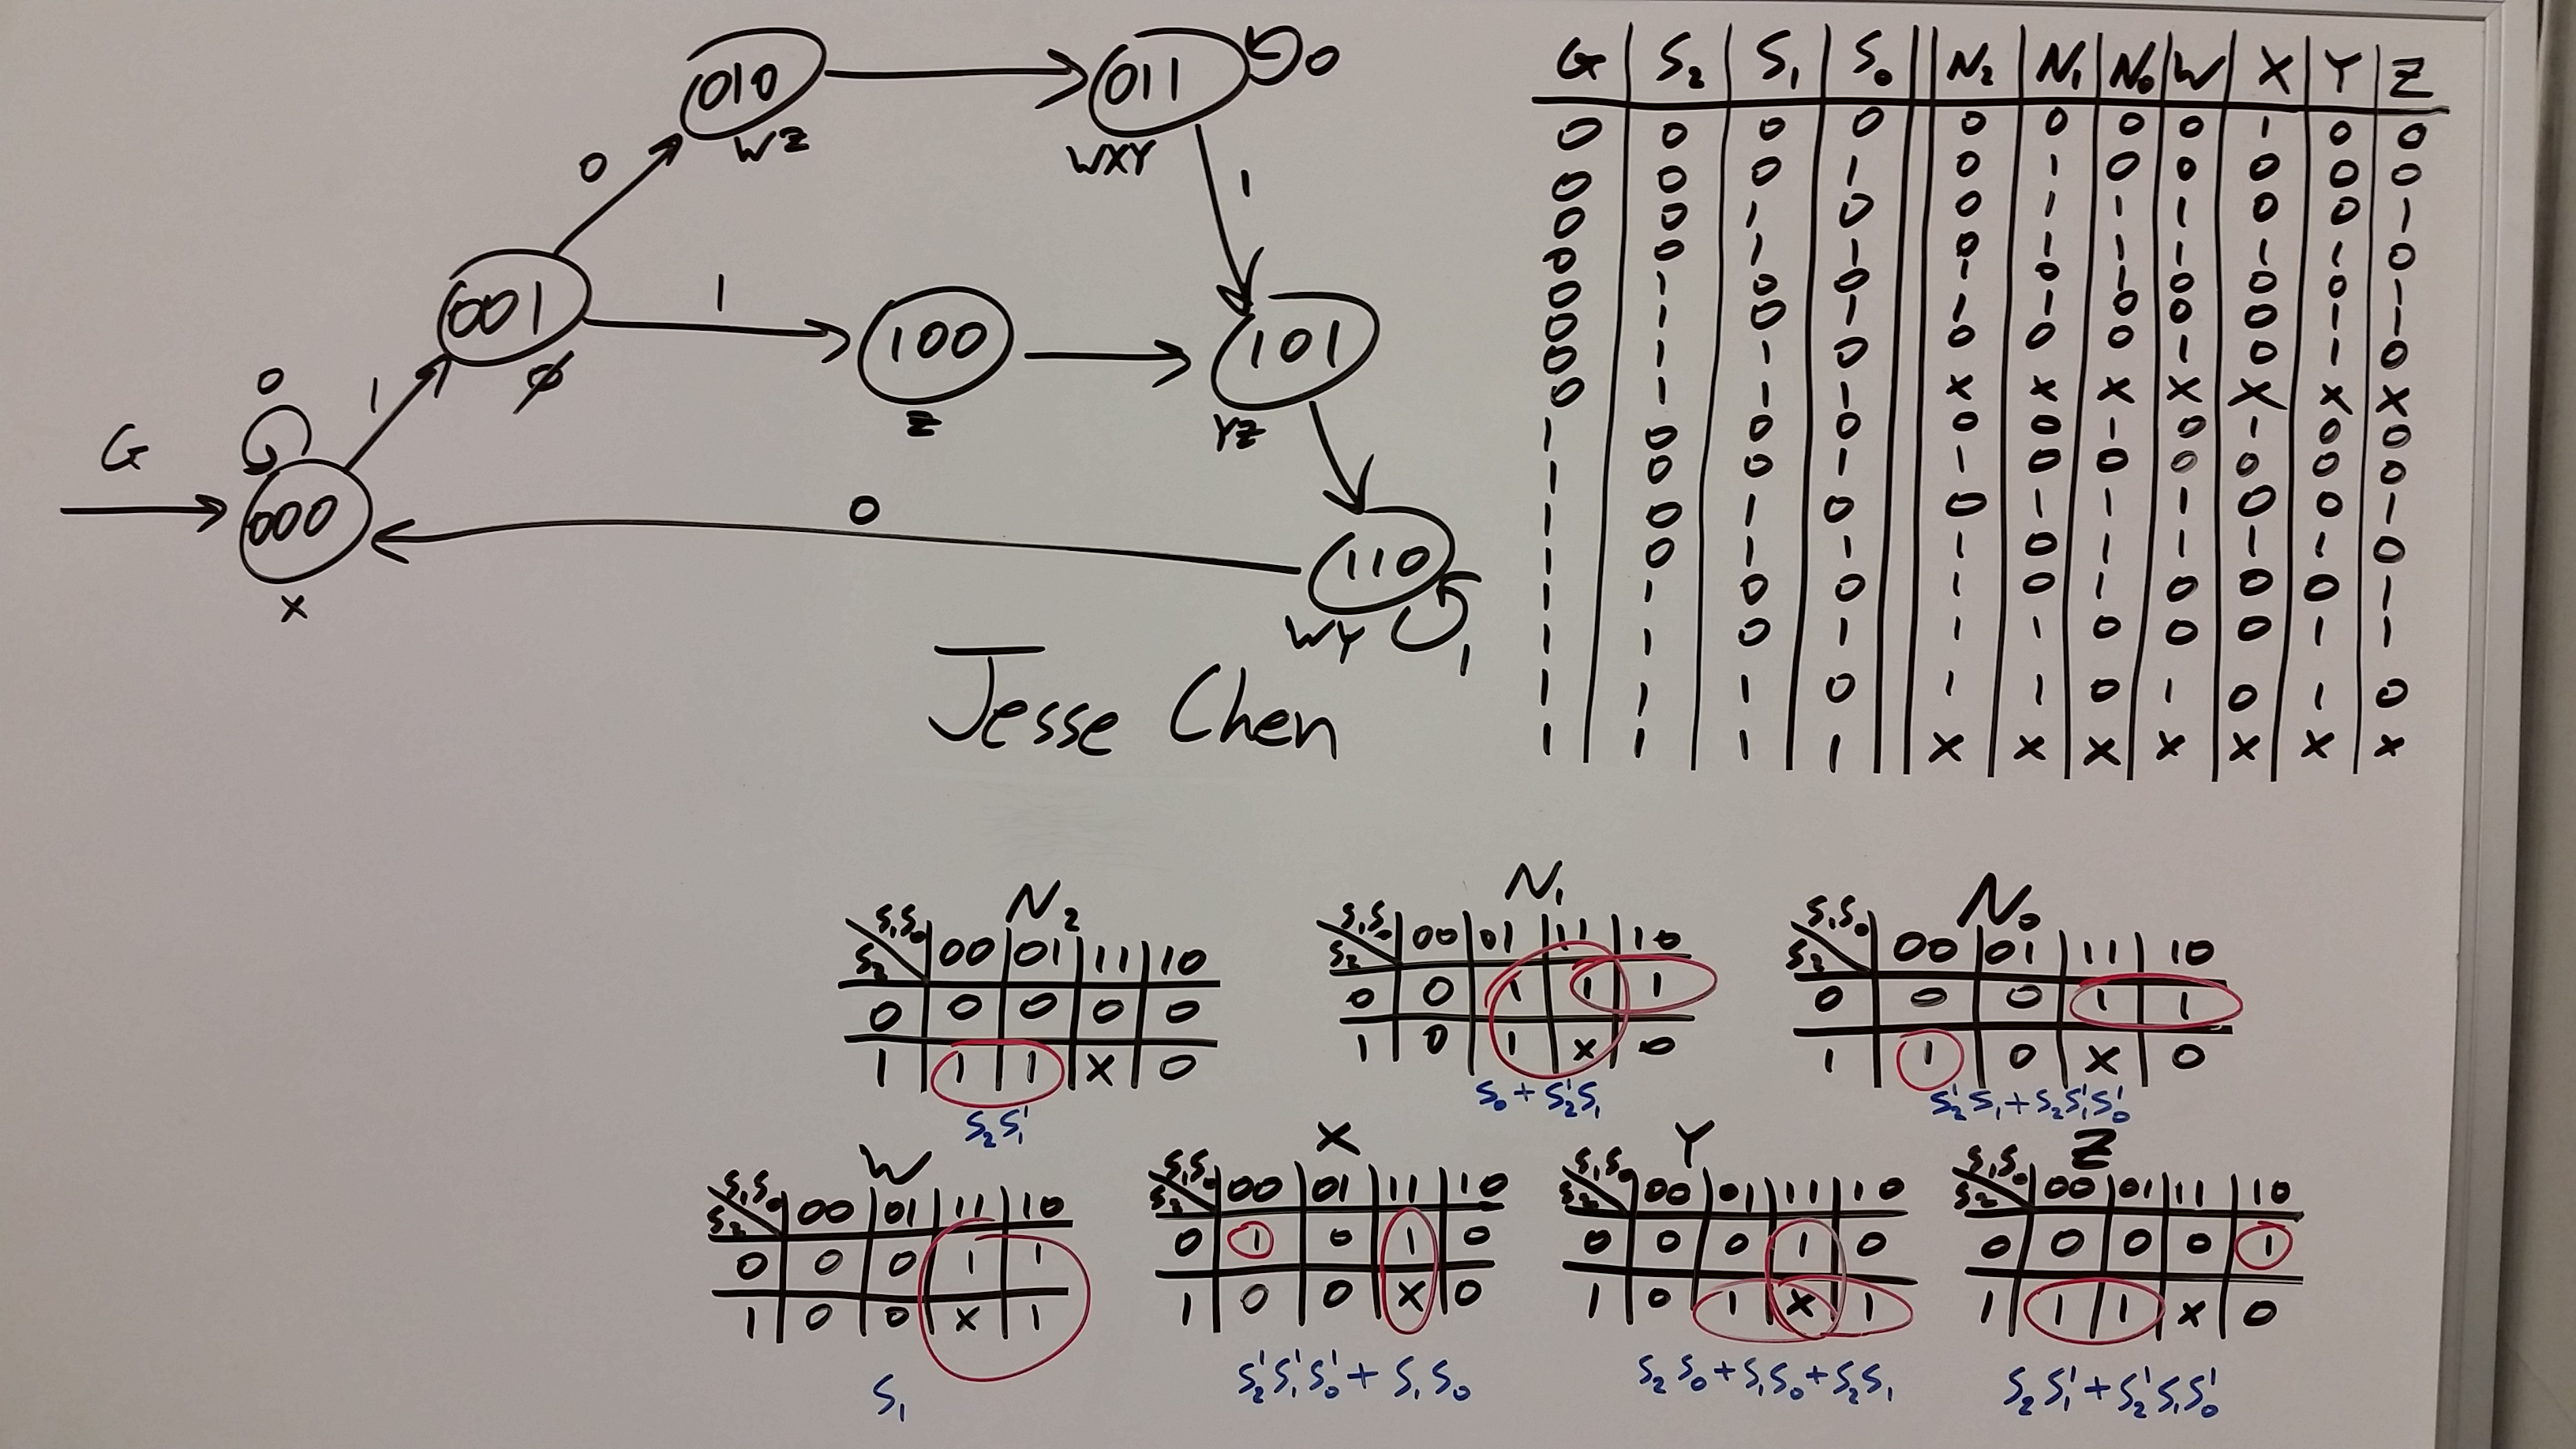 010
WZ
011
0
WXY
0
1
001
Ø
1
100
Z
101
YZ
0
1
G
000
X
0
110
WY
1
Jesse Chen
G S₂ S₁ S₀ N₂ N₁ N₀ W X Y Z
0 0 0 0 0 0 0 0 1 0 0
0 0 0 1 0 1 0 0 0 0 0
0 0 1 0 0 1 1 1 0 0 1
0 0 1 1 0 1 1 1 1 1 0
0 1 0 0 1 0 1 0 0 0 1
0 1 0 1 1 1 0 0 0 1 1
0 1 1 0 0 0 0 1 0 1 0
0 1 1 1 X X X X X X X
1 0 0 0 0 0 1 0 1 0 0
1 0 0 1 1 0 0 0 0 0 0
1 0 1 0 0 1 1 1 0 0 1
1 0 1 1 1 0 1 1 1 1 0
1 1 0 0 1 0 1 0 0 0 1
1 1 0 1 1 1 0 0 0 1 1
1 1 1 0 1 1 0 1 0 1 0
1 1 1 1 X X X X X X X
N₂
S₁S₀ 00 01 11 10
S₂
0 0 0 0 0
1 1 1 X 0
S₂S₁'
N₁
S₁S₀ 00 01 11 10
S₂
0 0 1 1 1
1 0 1 X 0
S₀ + S₂'S₁
N₀
S₁S₀ 00 01 11 10
S₂
0 0 0 1 1
1 1 0 X 0
S₂'S₁ + S₂S₁'S₀'
W
S₁S₀ 00 01 11 10
S₂
0 0 0 1 1
1 0 0 X 1
S₁
X
S₁S₀ 00 01 11 10
S₂
0 1 0 1 0
1 0 0 X 0
S₂'S₁'S₀' + S₁S₀
Y
S₁S₀ 00 01 11 10
S₂
0 0 0 1 0
1 0 1 X 1
S₂S₀ + S₁S₀ + S₂S₁
Z
S₁S₀ 00 01 11 10
S₂
0 0 0 0 1
1 1 1 X 0
S₂S₁' + S₂'S₁S₀'